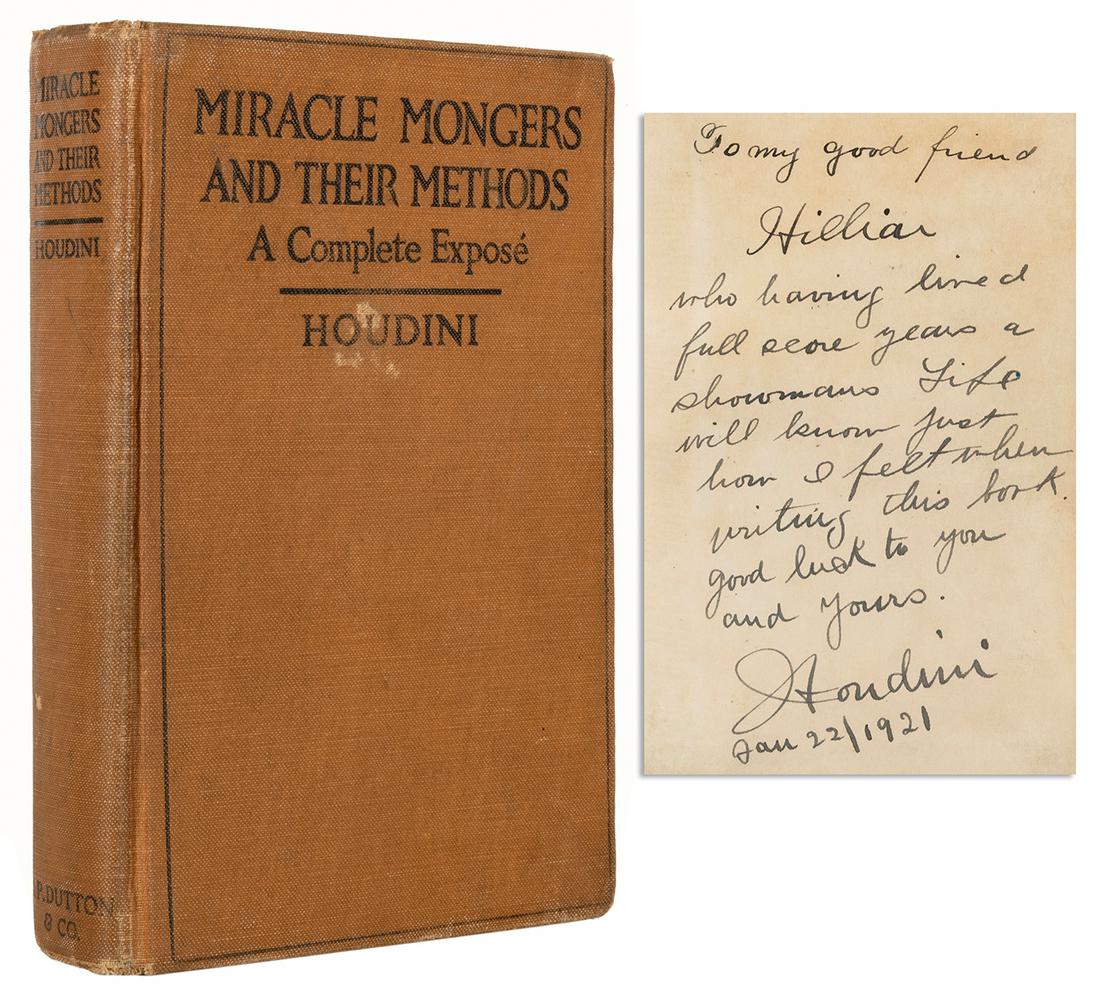 MIRACLE
MONGERS
AND THEIR
METHODS
HOUDINI
P. DUTTON
& CO.
MIRACLE MONGERS
AND THEIR METHODS
A Complete Exposé
HOUDINI
To my good friend
Hilliar
who having lived
full score years a
showmans Life
will know just
how I felt when
writing this book.
good luck to you
and yours.
Houdini
Jan 22/1921